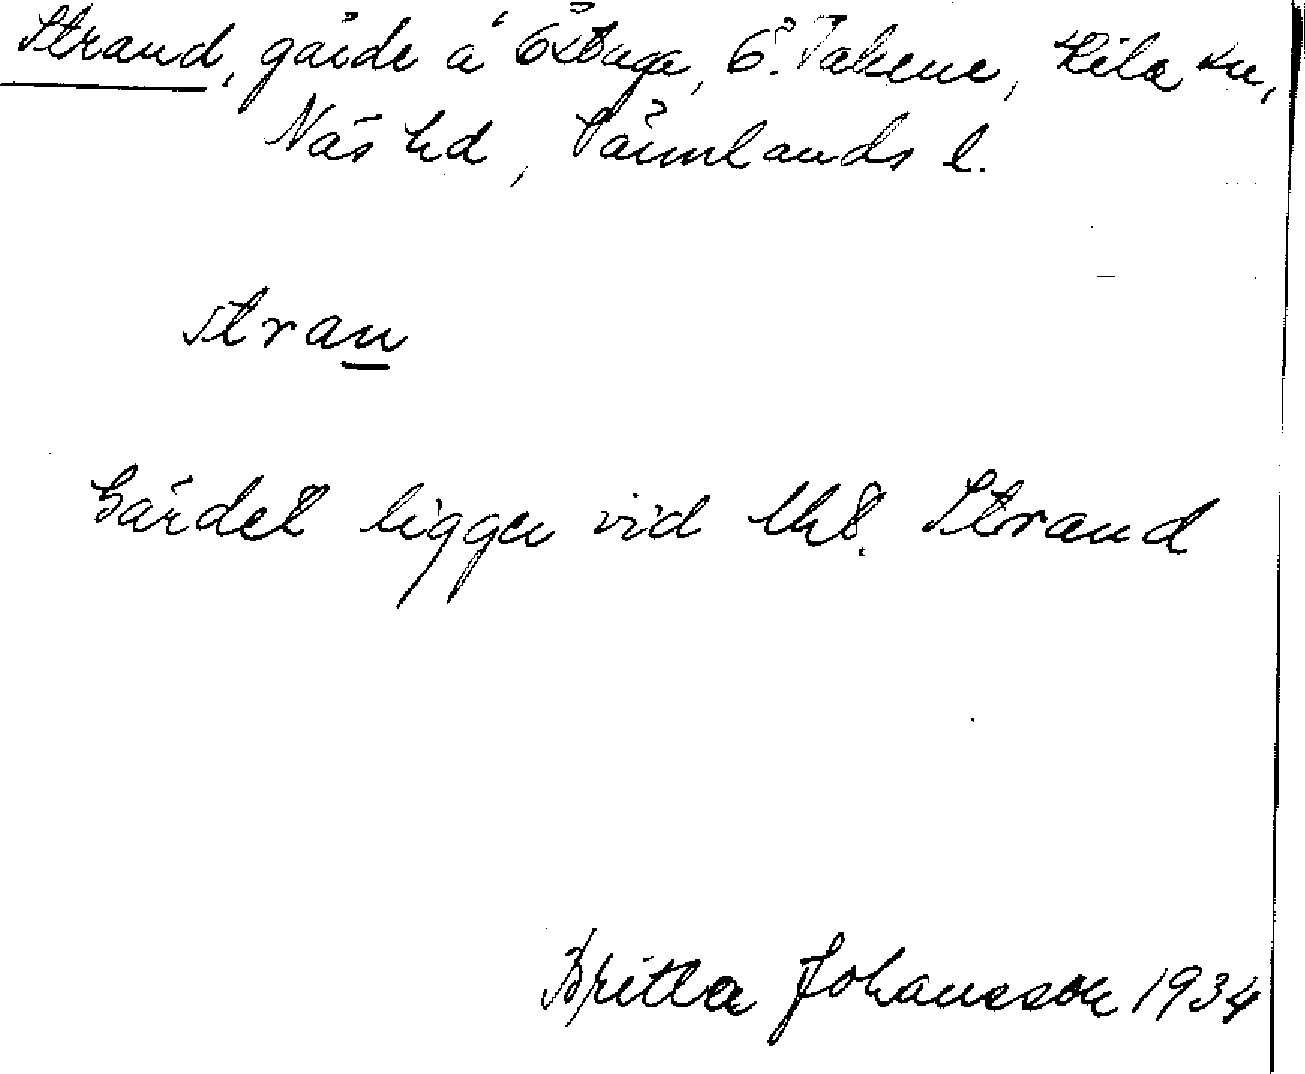 Strand, gärde å Östuga, Ö. Takene, Kila sn,
Näs hd, Värmlands l.
stran
Gärdet ligger vid lht. Strand
Britta Johansson 1934